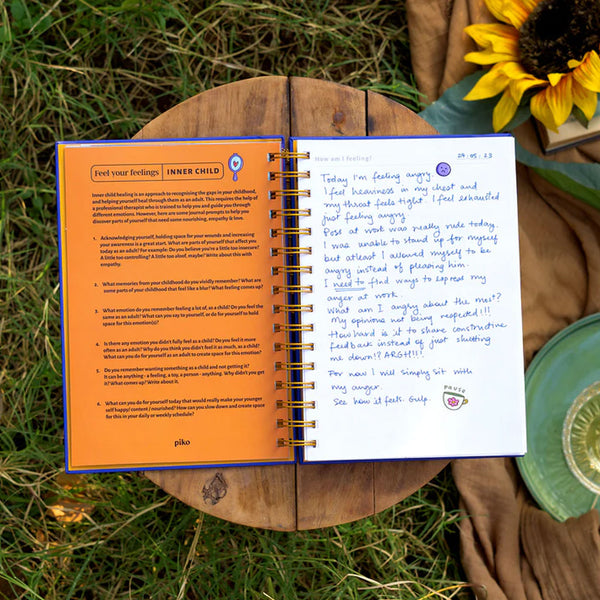 Feel your feelings | INNER CHILD
Inner child healing is an approach to recognising the gaps in your childhood,
and helping yourself heal through them as an adult. This requires the help of
a professional therapist who is trained to help you and guide you through
different emotions. However, here are some journal prompts to help you
discover parts of yourself that need some nourishing, empathy & love.
1. Acknowledging yourself, holding space for your wounds and increasing
your awareness is a great start. What are parts of yourself that affect you
today as an adult? For example: Do you believe you're a little too insecure?
A little too controlling? A little too aloof, maybe? Write about this with
empathy.
2. What memories from your childhood do you vividly remember? What are
some parts of your childhood that feel like a blur? What feeling comes up?
3. What emotion do you remember feeling a lot of, as a child? Do you feel the
same as an adult? What can you say to yourself, or do for yourself to hold
space for this emotion(s)?
4. Is there any emotion you didn't fully feel as a child? Do you feel it more
often as an adult? Why do you think you didn't feel it as much, as a child?
What can you do for yourself as an adult to create space for this emotion?
5. Do you remember wanting something as a child and not getting it?
It can be anything - a feeling, a toy, a person - anything. Why didn't you get
it? What comes up? Write about it.
6. What can you do for yourself today that would really make your younger
self happy/ content / nourished? How can you slow down and create space
for this in your daily or weekly schedule?
piko
How am I feeling?
09:05:23
Today I'm feeling angry.
I feel heaviness in my chest and
my throat feels tight. I feel exhausted
just feeling angry.
Boss at work was really rude today.
I was unable to stand up for myself
but atleast I allowed myself to be
angry instead of pleasing him.
I need to find ways to express my
anger at work.
What am I angry about the most?
My opinions not being respected!!!
How hard is it to share constructive
feedback instead of just shutting
me down!? ARGH!!!!
For now I will simply sit with
my anger.
See how it feels. Gulp.
pause